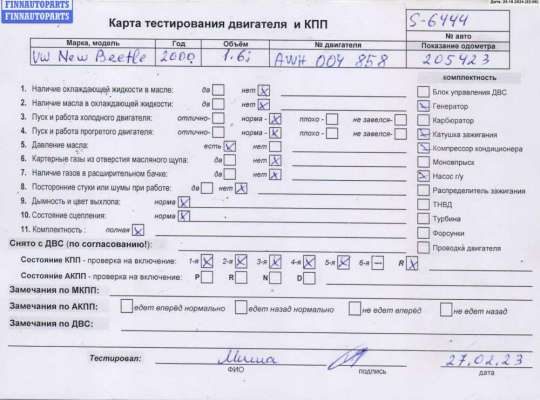 FINNAUTOPARTS
FINNAUTOPARTS
Карта тестирования двигателя и КПП
S-6444
№ авто
Марка, модель Год Объём № двигателя Показание одометра
VW New Beetle 2000 1.6i AWH 004 858 205423
комплектность
1. Наличие охлаждающей жидкости в масле: да нет X
2. Наличие масла в охлаждающей жидкости: да нет X
3. Пуск и работа холодного двигателя: отлично- норма - X плохо - не завелся-
4. Пуск и работа прогретого двигателя: отлично- норма - X плохо - не завелся-
5. Давление масла: есть X нет
6. Картерные газы из отверстия масляного щупа: да нет X
7. Наличие газов в расширительном бачке: да нет X
8. Посторонние стуки или шумы при работе: да нет X
9. Дымность и цвет выхлопа: норма X
10. Состояние сцепления: норма X
11. Комплектность : полная X
Блок управления ДВС
Генератор
Карбюратор
Катушка зажигания
Компрессор кондиционера
Моновпрыск
Насос г/у
Распределитель зажигания
ТНВД
Турбина
Форсунки
Проводка двигателя
Снято с ДВС (по согласованию!):
Состояние КПП - проверка на включение: 1-я X 2-я X 3-я X 4-я X 5-я X 6-я — R X
Состояние АКПП - проверка на включение: P R N D
Замечания по МКПП:
Замечания по АКПП: едет вперёд нормально едет назад нормально не едет вперёд не едет назад
Замечания по ДВС:
Тестировал: Миша 27.02.23
ФИО подпись дата